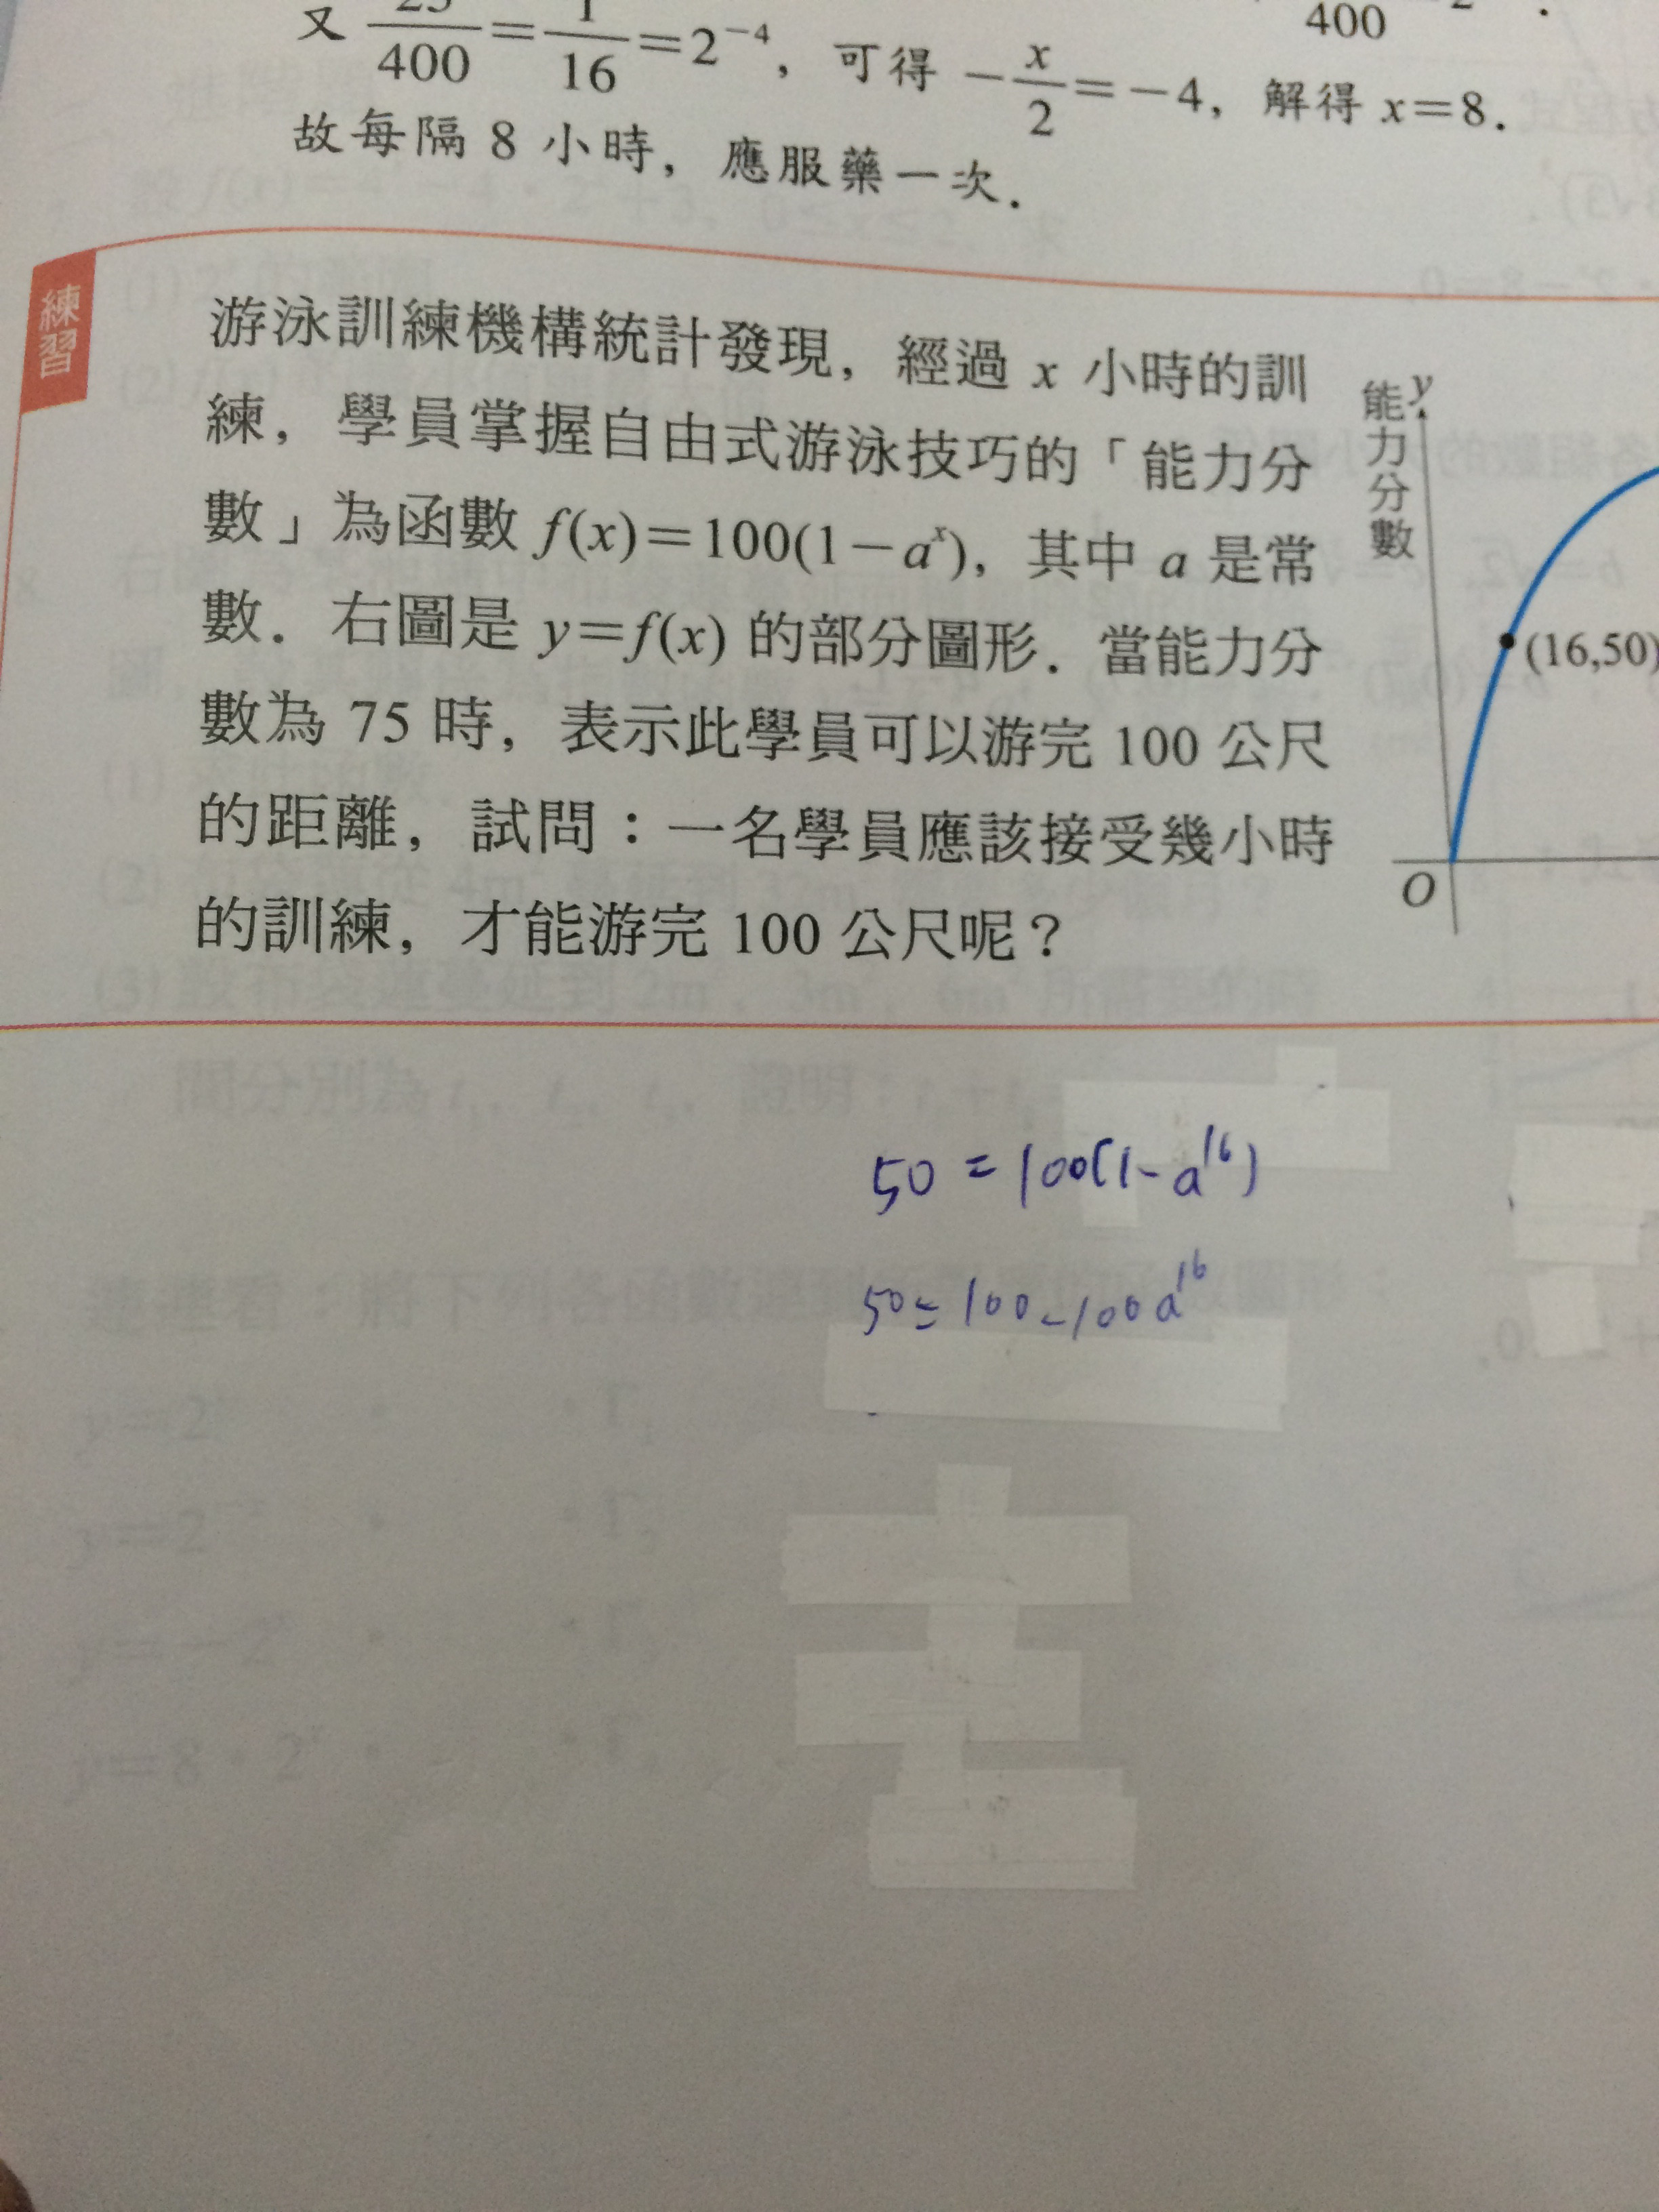 又 25/400=1/16=2^{-4}, 可得 -x/2=-4, 解得 x=8.
400
故每隔 8 小時, 應服藥一次.
練習
游泳訓練機構統計發現, 經過 x 小時的訓
練, 學員掌握自由式游泳技巧的「能力分
數」為函數 f(x)=100(1-a^x), 其中 a 是常
數. 右圖是 y=f(x) 的部分圖形. 當能力分
數為 75 時, 表示此學員可以游完 100 公尺
的距離, 試問:一名學員應該接受幾小時
的訓練, 才能游完 100 公尺呢?
能力分數
y
(16,50)
O
50=100(1-a^{16})
50=100-100a^{16}